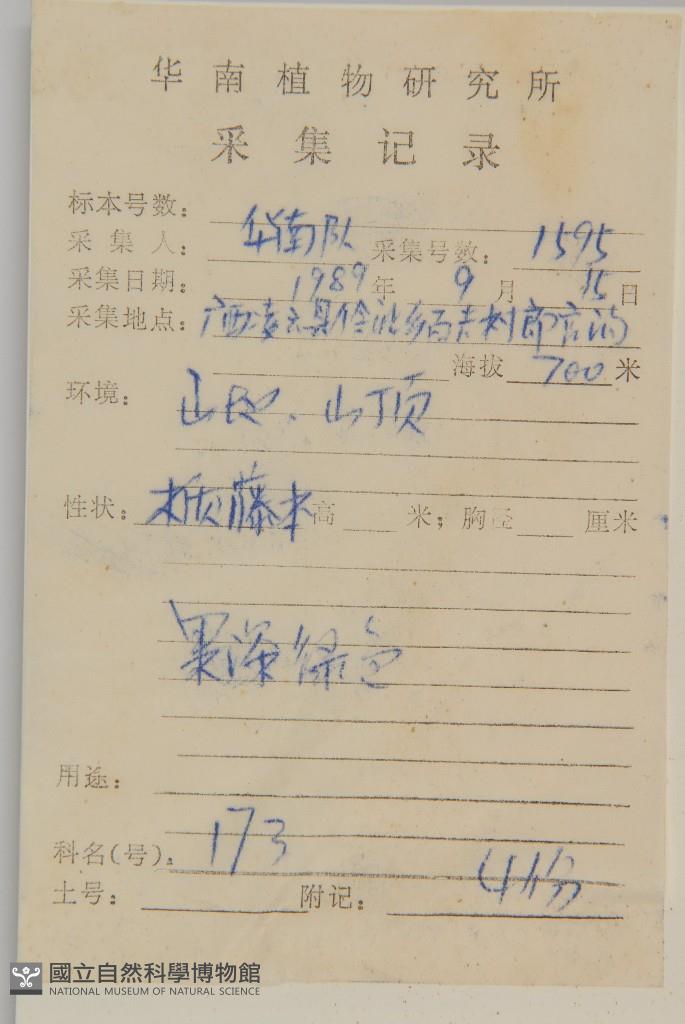 华南植物研究所
采集记录
标本号数：
采集人：华南队 采集号数：1595
采集日期：1989年9月15日
采集地点：广西凌云县伶站乡百
海拔700米
环境：山，山顶
性状：藤本 高 米；胸径 厘米
果深绿色
用途：
科名(号)：173
土号： 附记：4份
國立自然科學博物館
NATIONAL MUSEUM OF NATURAL SCIENCE